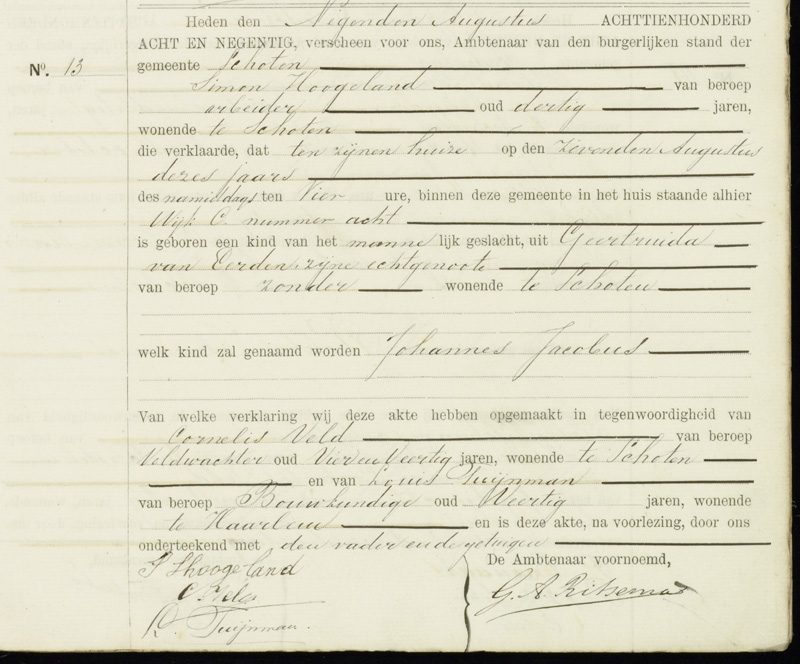 Heden den Negenden Augustus ACHTTIENHONDERD
ACHT EN NEGENTIG, verscheen voor ons, Ambtenaar van den burgerlijken stand der
No. 13
gemeente Schoten
Simon Hoogeland van beroep
arbeider oud dertig jaren,
wonende te Schoten
die verklaarde, dat ten zijnen huize op den zevenden Augustus
dezes jaars
des namiddags ten Vier ure, binnen deze gemeente in het huis staande alhier
Wijk C. nummer acht
is geboren een kind van het manne lijk geslacht, uit Geertruida
van Eerden, zijne echtgenoote
van beroep zonder wonende te Schoten
welk kind zal genaamd worden Johannes Jacobus
Van welke verklaring wij deze akte hebben opgemaakt in tegenwoordigheid van
Cornelis Veld van beroep
Veldwachter oud Vier en Veertig jaren, wonende te Schoten
en van Louis Twijnman
van beroep Bouwkundige oud Veertig jaren, wonende
te Haarlem en is deze akte, na voorlezing, door ons
onderteekend met den vader en de getuigen
De Ambtenaar voornoemd,
S Hoogeland
C Veld
G. A. Ritsema
L. Twijnman.